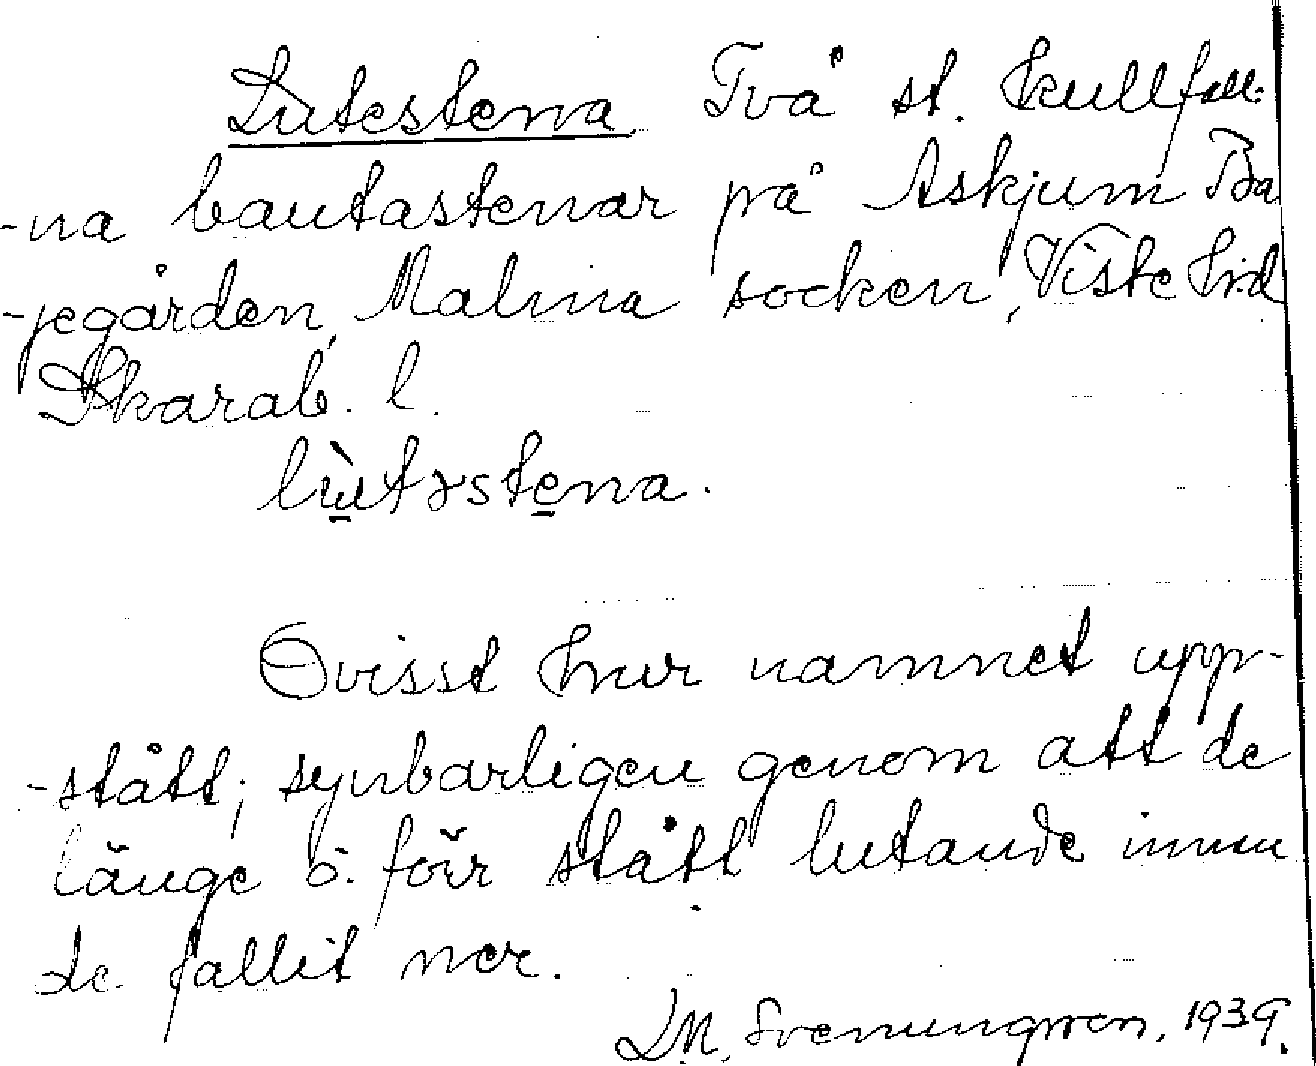 Lutestena Två st. kullfall-
-na bautastenar på Askjum Ba
-jegården, Malma socken, Viste hrd
Skarab. l.
lùtəstena.
Ovisst hur namnet upp-
-stått; synbarligen genom att de
länge o. förr stått lutande innan
de fallit ner.
L.M. Svenungsson, 1939.